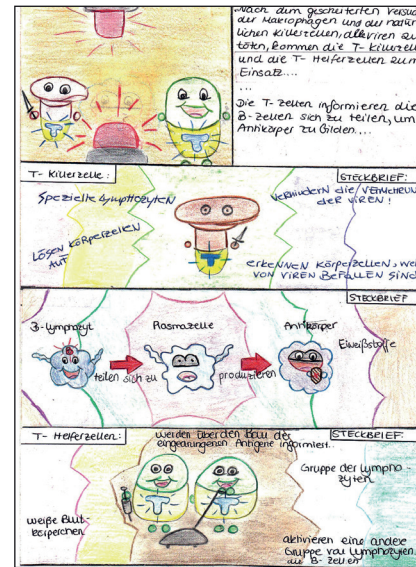 Nach dem gescheiterten Versuch
der Makrophagen und der natür-
lichen Killerzellen, alle Viren zu
töten, kommen die T-Killerzellen
und die T-Helferzellen zum
Einsatz....
...
Die T-Zellen informieren die
B-Zellen sich zu teilen, um
Antikörper zu bilden...
T
T
T-Killerzelle:
STECKBRIEF:
Spezielle Lymphozyten
VERHINDERN DIE VERMEHRUN
DER VIREN!
LÖSEN KÖRPERZELLEN
AUF
T
ERKENNEN KÖRPERZELLEN, WE
VON VIREN BEFALLEN SIND
STECKBRIEF
B-Lymphozyt
Plasmazelle
Antikörper
Eiweißstoffe
teilen sich zu
produzieren
T-Helferzellen:
werden über den Bau der
eingedrungenen Antigene informiert..
STECKBRIEF:
Gruppe der Lympho-
zyten
T
T
weiße Blut-
körperchen
aktivieren eine andere
Gruppe von Lymphozyten,
die B-Zellen